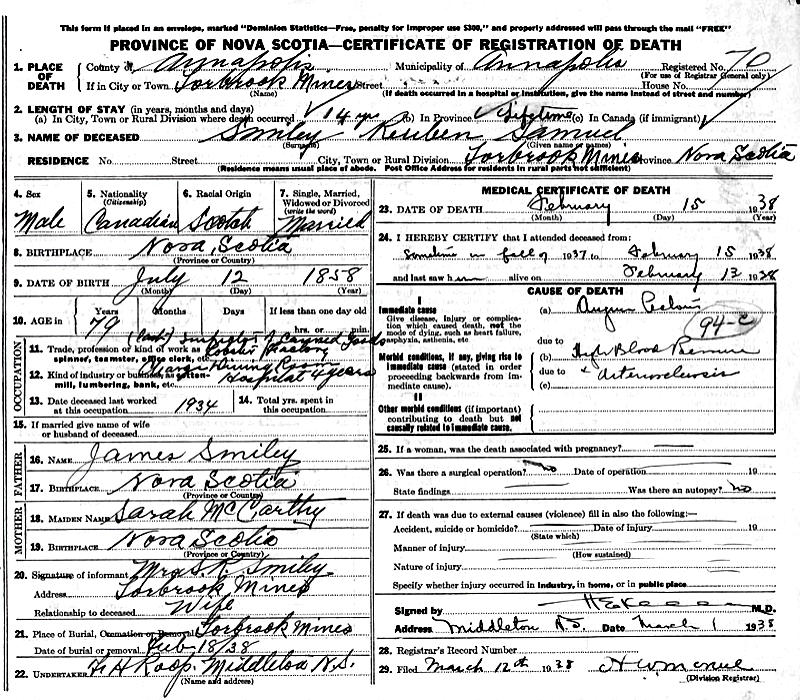 This form if placed in an envelope, marked "Dominion Statistics—Free, penalty for improper use $300," and properly addressed will pass through the mail "FREE"
PROVINCE OF NOVA SCOTIA—CERTIFICATE OF REGISTRATION OF DEATH
1. PLACE OF DEATH County of Annapolis Municipality of Annapolis Registered No. 70
(For use of Registrar General only)
If in City or Town Torbrook Mines Street House No.
(Name) (If death occurred in a hospital or institution, give the name instead of street and number)
2. LENGTH OF STAY (in years, months and days)
(a) In City, Town or Rural Division where death occurred 14 yrs (b) In Province Lifetime (c) In Canada (if immigrant)
3. NAME OF DECEASED Smiley Reuben Samuel
(Surname) (Given name or names)
RESIDENCE No. Street City, Town or Rural Division Torbrook Mines Province Nova Scotia
(Residence means usual place of abode. Post Office Address for residents in rural parts not sufficient)
4. Sex Male
5. Nationality (Citizenship) Canadian
6. Racial Origin Scotch
7. Single, Married, Widowed or Divorced (write the word) Married
8. BIRTHPLACE Nova Scotia
(Province or Country)
9. DATE OF BIRTH July 12 1858
(Month) (Day) (Year)
10. AGE in Years 79 Months Days If less than one day old
hrs. or min.
OCCUPATION
11. Trade, profession or kind of work as spinner, teamster, office clerk, etc. Inspector of Canned Goods Lobster Factory
12. Kind of industry or business, as cotton-mill, lumbering, bank, etc. Hospital 4 years
13. Date deceased last worked at this occupation 1934
14. Total yrs. spent in this occupation
15. If married give name of wife or husband of deceased
FATHER
16. NAME James Smiley
17. BIRTHPLACE Nova Scotia
(Province or Country)
MOTHER
18. MAIDEN NAME Sarah McCarthy
19. BIRTHPLACE Nova Scotia
(Province or Country)
20. Signature of informant Mrs S. R. Smiley
Address Torbrook Mines
Relationship to deceased Wife
21. Place of Burial, Cremation or Removal Torbrook Mines
Date of burial or removal Feb 18/38
22. UNDERTAKER Roop, Middleton N.S.
(Name and address)
MEDICAL CERTIFICATE OF DEATH
23. DATE OF DEATH February 15 1938
(Month) (Day) (Year)
24. I HEREBY CERTIFY that I attended deceased from:
Sometime in fall of 1937 to February 15 1938
and last saw him alive on February 13 1938
CAUSE OF DEATH
I
Immediate cause
Give disease, injury or complication which caused death, not the mode of dying, such as heart failure, asphyxia, asthenia, etc.
(a) Angina Pectoris 94-C
due to
Morbid conditions, if any, giving rise to immediate cause (stated in order proceeding backwards from immediate cause).
(b) High Blood Pressure
due to + Arteriosclerosis
(c)
II
Other morbid conditions (if important) contributing to death but not causally related to immediate cause.
25. If a woman, was the death associated with pregnancy?
26. Was there a surgical operation? no Date of operation 19
State findings Was there an autopsy? no
27. If death was due to external causes (violence) fill in also the following:—
Accident, suicide or homicide? Date of injury 19
(State which)
Manner of injury
(How sustained)
Nature of injury
Specify whether injury occurred in industry, in home, or in public place
Signed by M.D.
Address Middleton N.S. Date March 1 1938
28. Registrar's Record Number
29. Filed March 12th 1938
(Division Registrar)